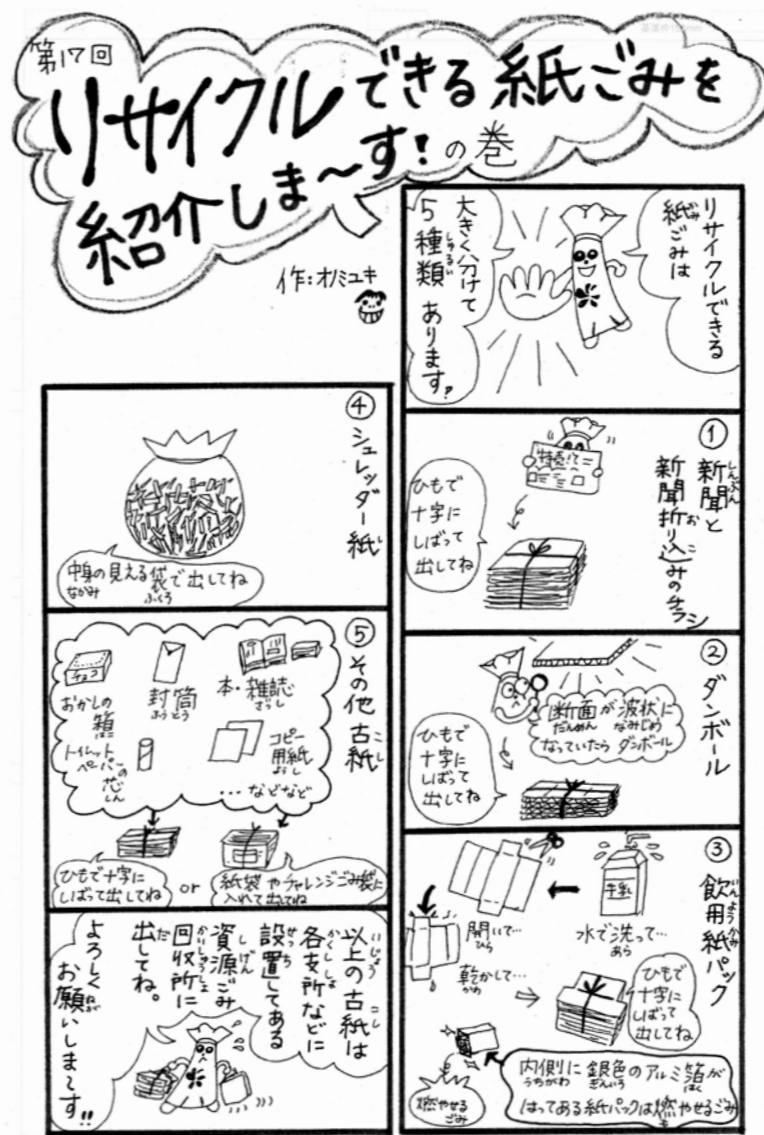 第17回
リサイクルできる紙ごみを
紹介しま〜す!の巻
作:オノミユキ
リサイクルできる
紙ごみは
大きく分けて
5種類
あります!
① 新聞と
新聞折り込みのチラシ
特売!
ひもで
十字に
しばって
出してね
② ダンボール
断面が波状に
なっていたら ダンボール
ひもで
十字に
しばって
出してね
③ 飲用紙パック
牛乳
水で洗って…
開いて…
乾かして…
ひもで
十字に
しばって
出してね
内側に銀色のアルミ箔が
はってある紙パックは燃やせるごみ
燃やせる
ごみ
④ シュレッダー紙
中身の見える袋で出してね
⑤ その他古紙
チョコ
おかしの
箱
封筒
本・雑誌
トイレット
ペーパーの
芯
コピー
用紙
…などなど
ひもで十字に
しばって出してね
or
紙袋やチャレンジごみ袋に
入れて出してね
以上の古紙は
各支所などに
設置してある
資源ごみ
回収所に
出してね。
よろしく
お願いしま〜す!!